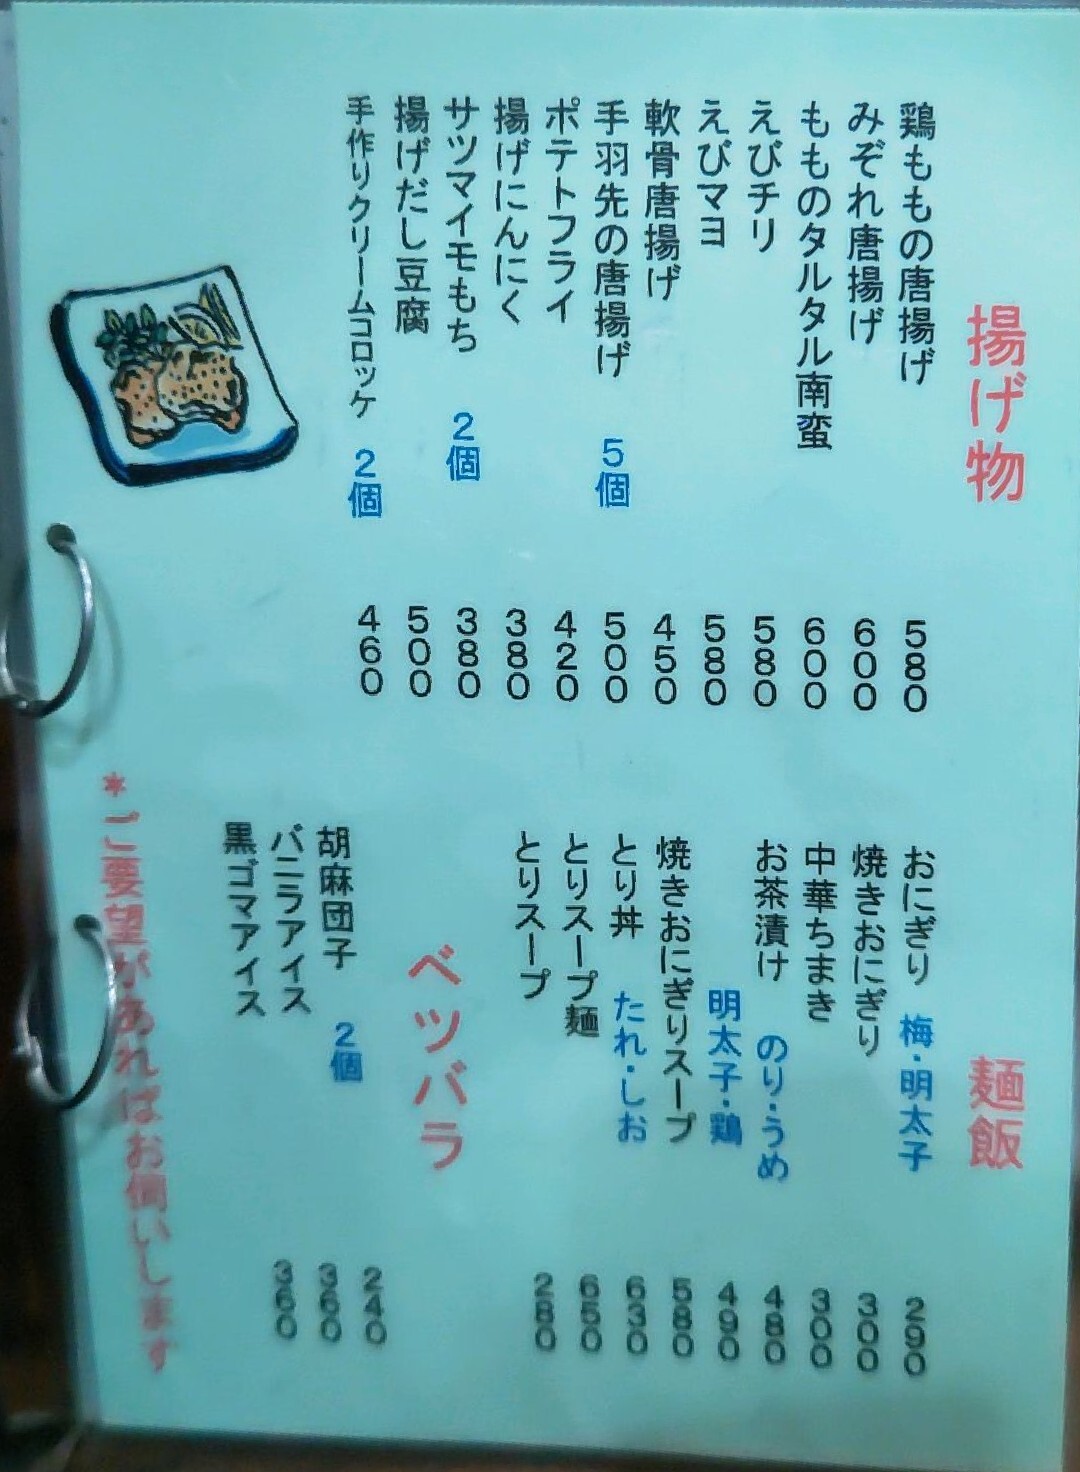 揚げ物
鶏ももの唐揚げ 580
みぞれ唐揚げ 600
もものタルタル南蛮 600
えびチリ 580
えびマヨ 580
軟骨唐揚げ 450
手羽先の唐揚げ 5個 500
ポテトフライ 420
揚げにんにく 380
サツマイモもち 2個 380
揚げだし豆腐 500
手作りクリームコロッケ 2個 460
麺飯
おにぎり 梅・明太子 290
焼きおにぎり 300
中華ちまき 300
お茶漬け のり・うめ 480
明太子・鶏 490
焼きおにぎりスープ 580
とり丼 たれ・しお 630
とりスープ麺 650
とりスープ 280
ベツバラ
胡麻団子 2個 240
バニラアイス 360
黒ゴマアイス 360
*ご要望があればお伺いします